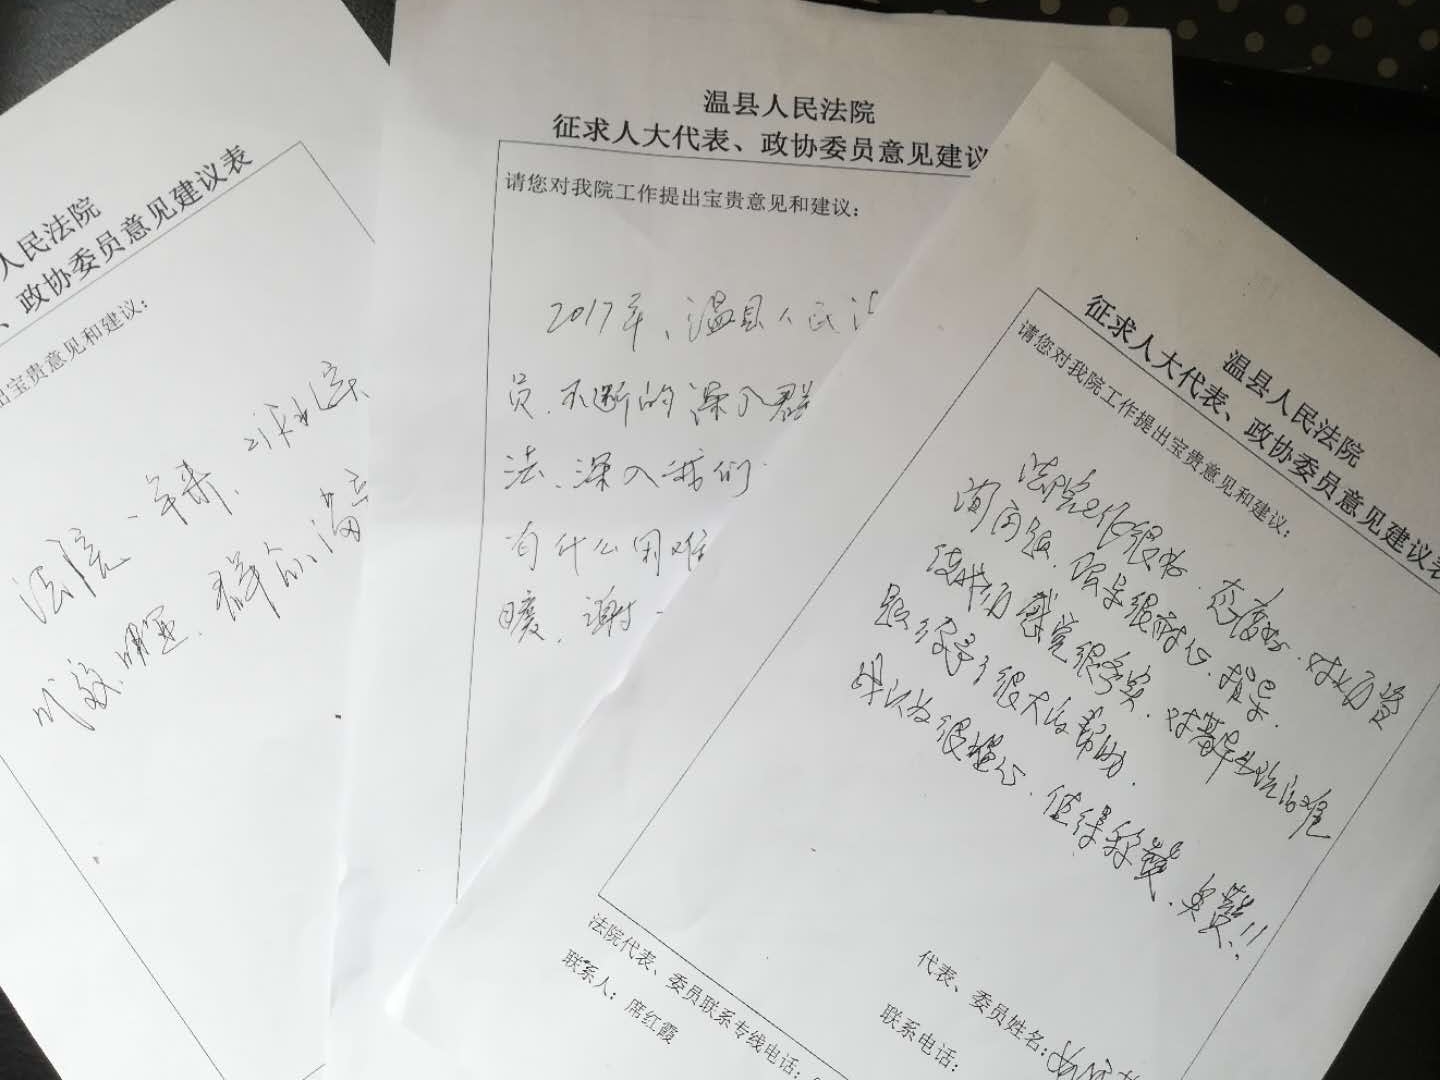 人民法院
、政协委员意见建议表
出宝贵意见和建议：
法院一年来，
成效明显，群众满意
温县人民法院
征求人大代表、政协委员意见建议
请您对我院工作提出宝贵意见和建议：
2017年，温县人民法
员，不断的深入群
法、深入我们
有什么困难
暖，谢
温县人民法院
征求人大代表、政协委员意见建议表
请您对我院工作提出宝贵意见和建议：
法院工作很好，态度好，对
询问题，很耐心，指导，
感觉很务实，对
题给予了很大的帮助，
所以为很 心，值得称赞，点赞！！
代表、委员姓名：
联系电话：
法院代表、委员联系专线电话：
联系人：席红霞